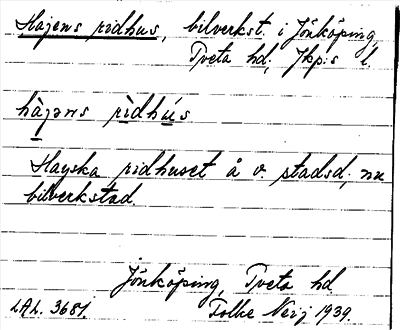 Hajens ridhus, bilverkst. i Jönköping,
Tveta hd, Jkp:s l.
hàjəns rìdhús
Hayska ridhuset å v. stadsd, nu
bilverkstad.
Jönköping, Tveta hd
LAL. 3681. Folke Neij 1939.